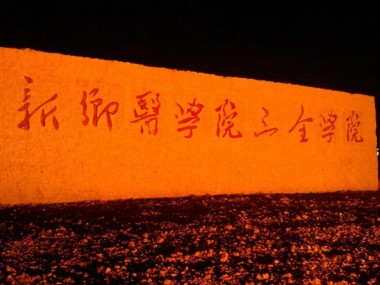 新鄉醫學院三全學院